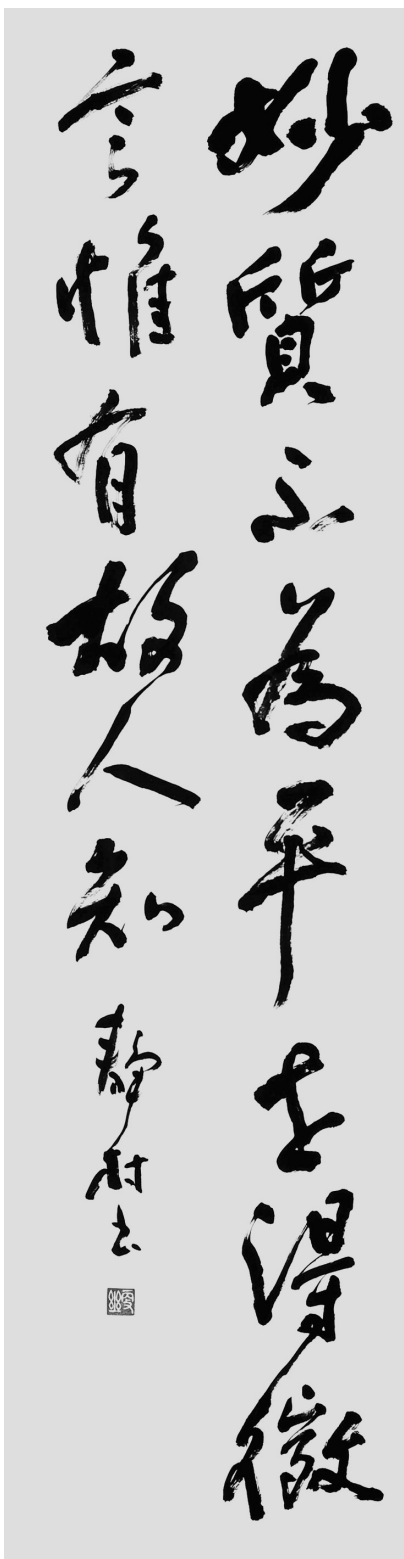 妙質不為平世得微
言惟有故人知
靜村書